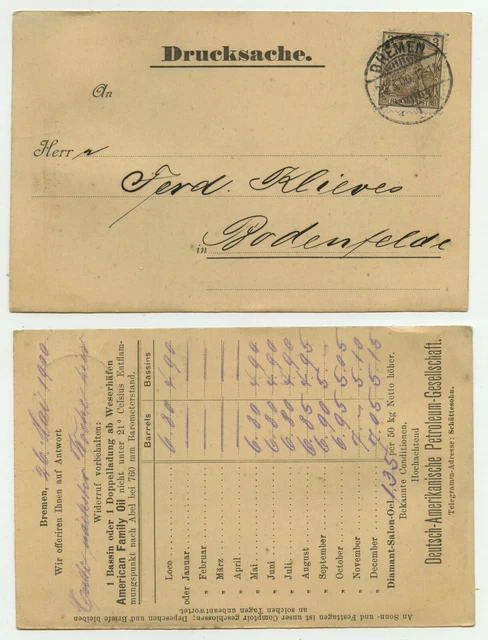 Drucksache.
BREMEN
An
Herrn
Ferd. Klieves
in Bodenfelde
Bremen, 26. Mai 1900
Wir offeriren Ihnen auf Antwort
Ende nächster Woche hier
Widerruf vorbehalten:
1 Bassin oder 1 Doppelladung ab Weserhäfen
American Family Oil nicht unter 21° Celsius Entflam-
mungspunkt nach Abel bei 760 mm Barometerstand.
Barrels Bassins
Loco 6.80 4.90
oder Januar
" Februar
" März
" April
" Mai 6.80 4.90
" Juni 6.80 4.90
" Juli 6.80 4.90
" August 6.85 4.95
" September 6.90 5.–
" October 6.95 5.05
" November 7.– 5.10
" December 7.05 5.15
Diamant-Salon-Oel 1,35 per 50 kg Netto höher.
Bekannte Conditionen.
Hochachtend
Deutsch-Amerikanische Petroleum-Gesellschaft.
Telegramm-Adresse: Schütteohn.
An Sonn- und Festtagen ist unser Comptoir geschlossen; Depeschen und Briefe bleiben
an solchen Tagen unbeantwortet.